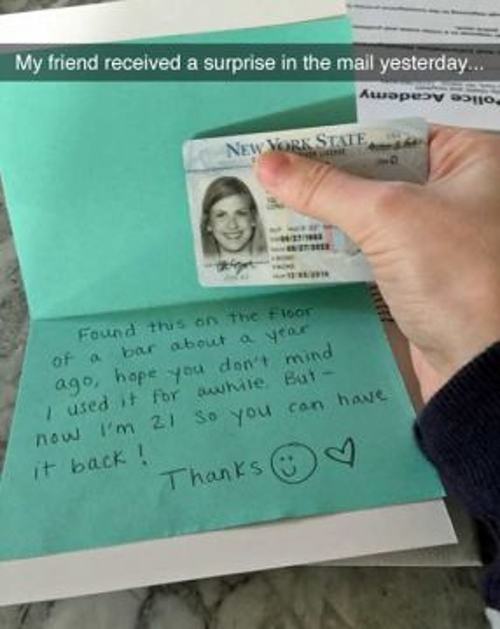 My friend received a surprise in the mail yesterday...
Police Academy
NEW YORK STATE
Found this on the floor
of a bar about a year
ago, hope you don't mind
I used it for awhile. But -
now I'm 21 so you can have
it back!
Thanks